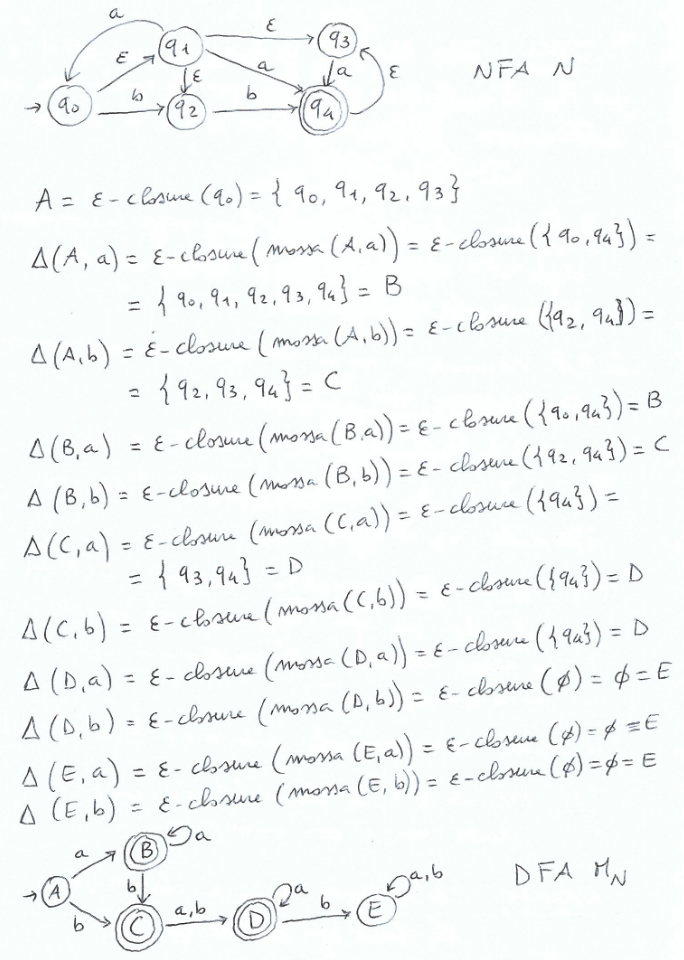 a
ε
q1
q3
ε
ε
a
a
ε
NFA N
q0
b
q2
b
q4
A = ε-closure(q0) = { q0, q1, q2, q3 }
Δ(A, a) = ε-closure(mossa(A,a)) = ε-closure({ q0, q4 }) =
= { q0, q1, q2, q3, q4 } = B
Δ(A,b) = ε-closure(mossa(A,b)) = ε-closure({q2, q4}) =
= { q2, q3, q4 } = C
Δ(B,a) = ε-closure(mossa(B,a)) = ε-closure({q0,q4}) = B
Δ(B,b) = ε-closure(mossa(B,b)) = ε-closure({q2, q4}) = C
Δ(C,a) = ε-closure(mossa(C,a)) = ε-closure({q4}) =
= { q3, q4 } = D
Δ(C,b) = ε-closure(mossa(C,b)) = ε-closure({q4}) = D
Δ(D,a) = ε-closure(mossa(D,a)) = ε-closure({q4}) = D
Δ(D,b) = ε-closure(mossa(D,b)) = ε-closure(∅) = ∅ = E
Δ(E,a) = ε-closure(mossa(E,a)) = ε-closure(∅) = ∅ = E
Δ(E,b) = ε-closure(mossa(E,b)) = ε-closure(∅) = ∅ = E
a
B
a
A
b
a
a,b
DFA MN
b
C
a,b
D
b
E